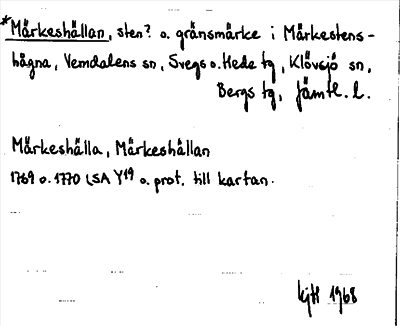 *Märkeshällan, sten? o. gränsmärke i Märkestens-
hågna, Vemdalens sn, Svegs o. Hede tg, Klövsjö sn,
Bergs tg, Jämtl. l.
Märkeshälla, Märkeshällan
1769 o. 1770 LSA Y19 o. prot. till kartan.
1968